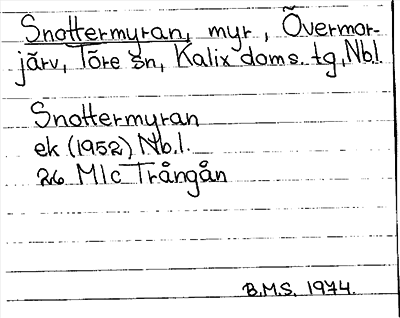 Snottermyran, myr, Övermor-
järv, Töre sn, Kalix doms. tg, Nb.l.
Snottermyran
ek (1952) Nb.l.
26 M1c Trångån
B.M.S. 1974.